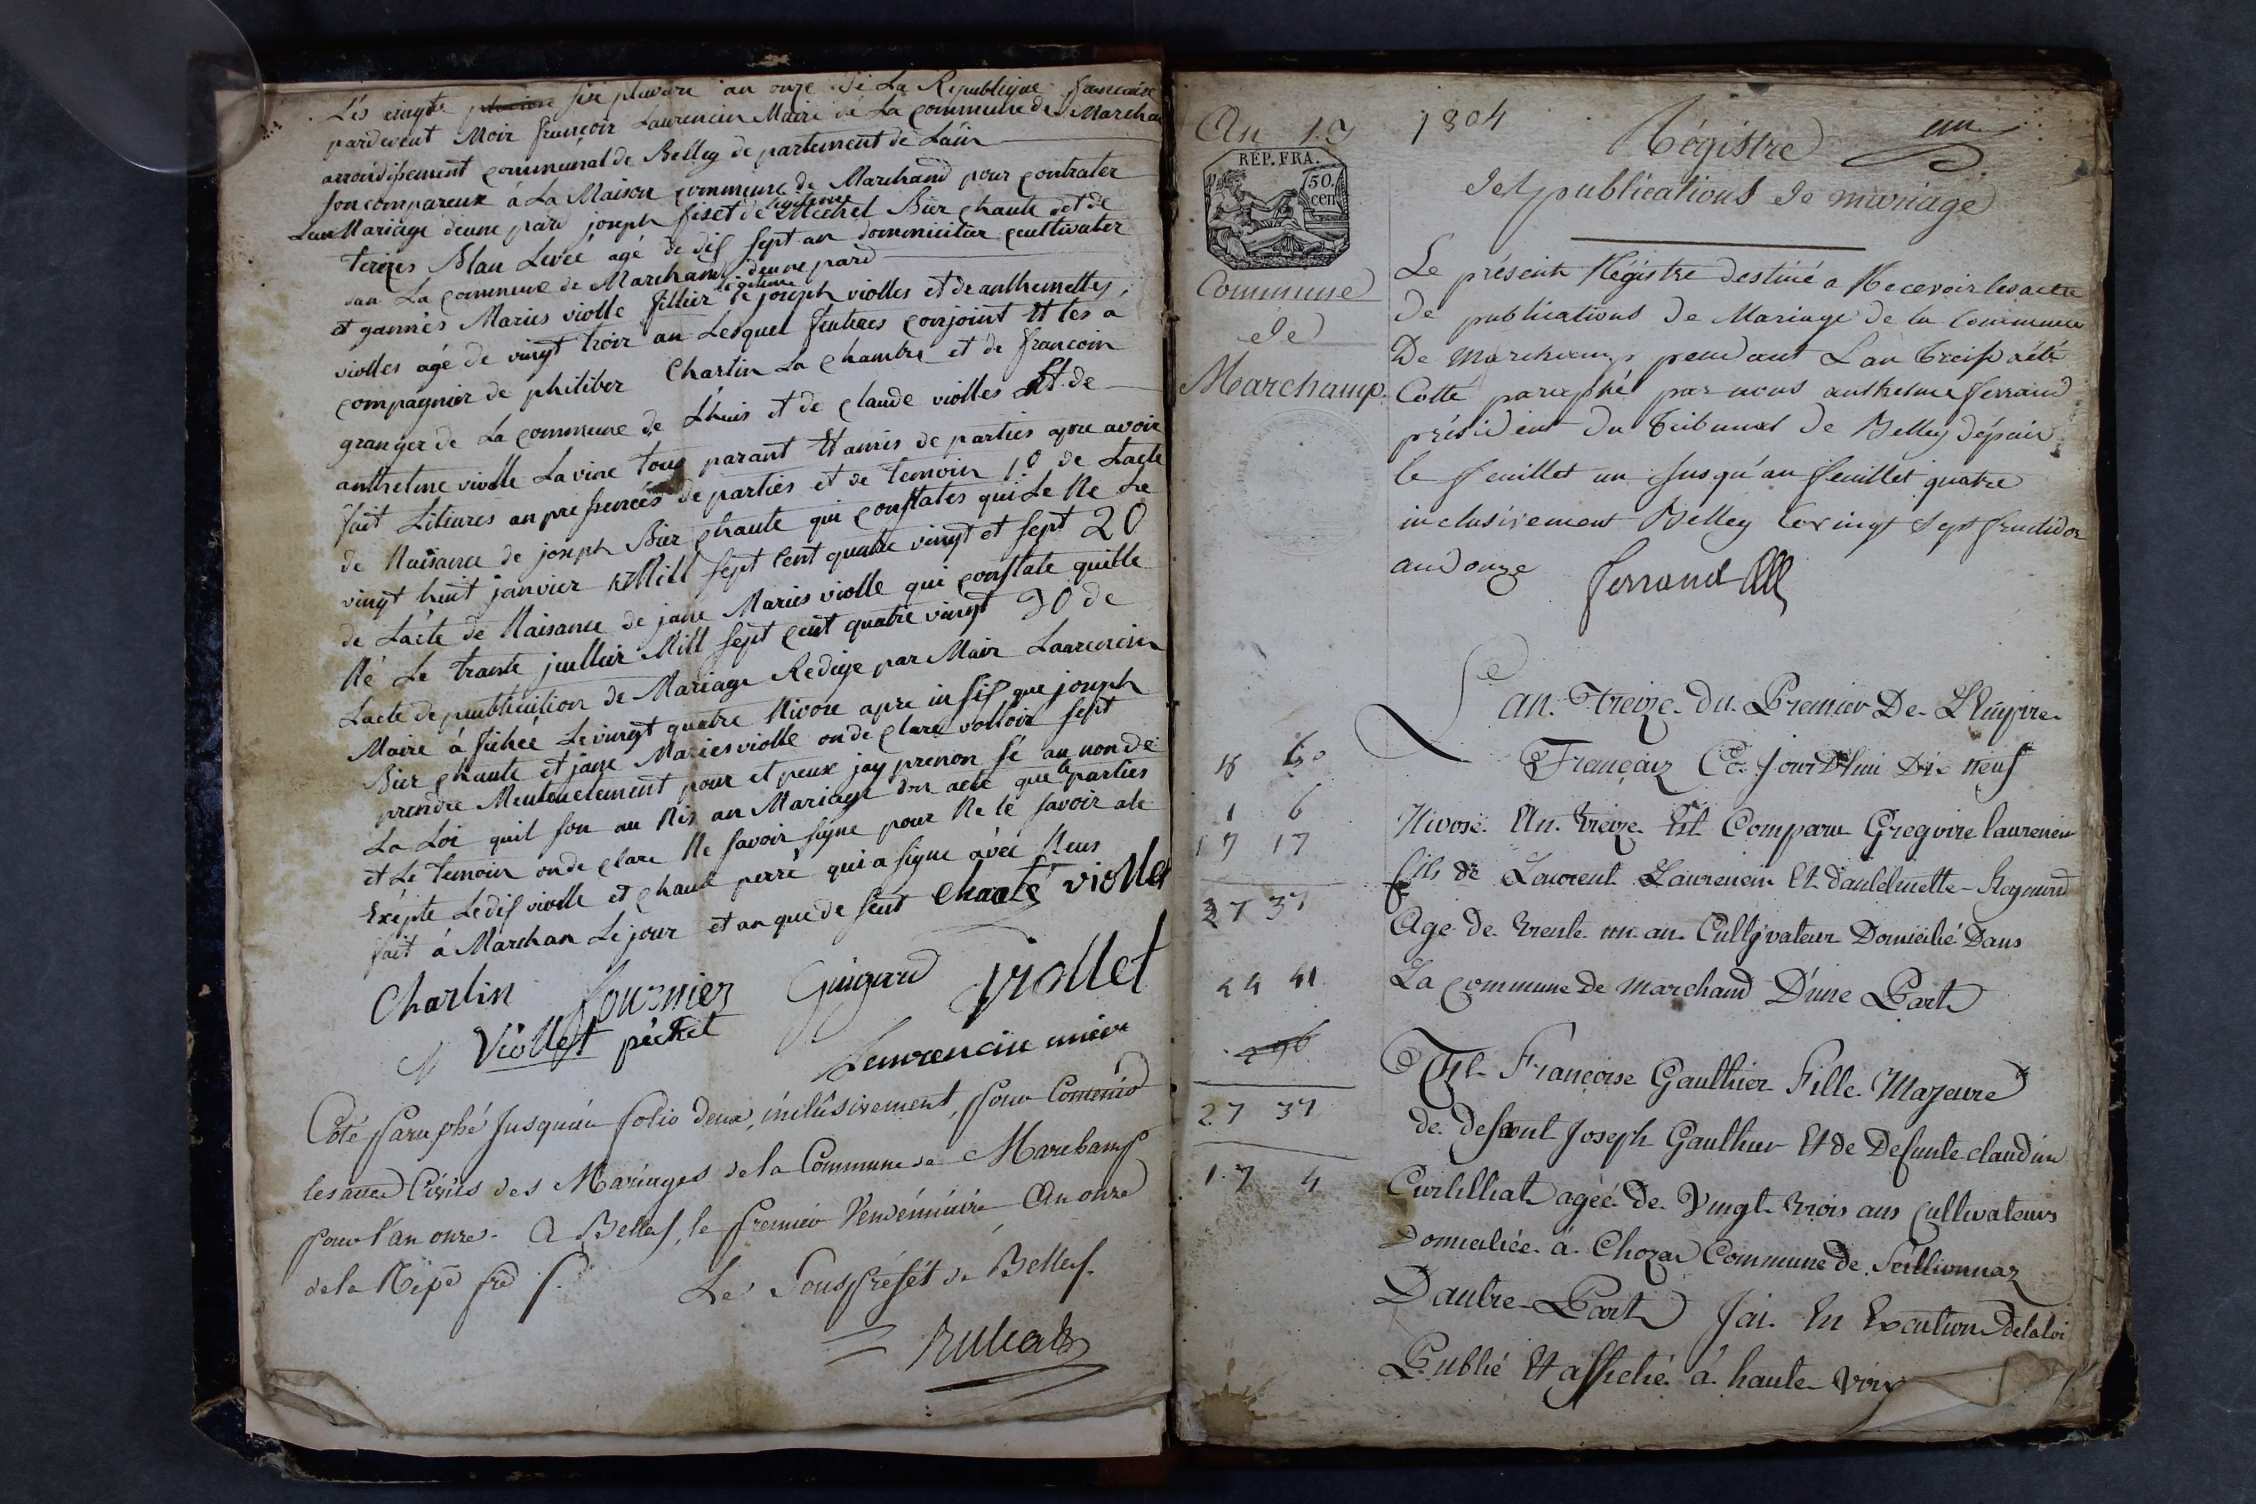 Lés vingte six pluvore an onze dé La Republique francaise
pardevent Moir françoir Laurencin Maire dé La commune de Marchan
arrondissement communal de Belley de partement de Láin
son compareux á La Maison commune de Marchand pour contrater
Leur Mariage deune pard joseph fiset de legitime Michel Bier chaute et de
terèzes Blau Levée agé de dis sept an dommicilier cultivater
dan La commune de Marchand deune pard
et gannès Maries violle fillier legitime de joseph violles et de anthemettes
violles agé de vingt troir an Lesquel feuteres conjoint Et tes a
compagnier de philiber Charlin La chambre et de francoin
granger de La commune de Lhuis et de claude violles Et de
anthelme violle Lavine tous parant Et amis de parties apre avoir
fait Liteures an pressencés de parties et de temoin 1º de Lacte
de Naisance de joseph Bier chaute qui constates qui Le Ne Le
vingt huit janvier Mill sept Cent quatre vingt et sept 20
de Lácte de Naisance de jane Maries violle qui constate quille
Né Le trante juillier Mill sept cent quatre vingt 30 de
Lacte de publication de Mariage Redige par Mair Laarencin
Maire á fichée Le vingt quatre Nivore apre in sis que joseph
Bier chaute et jane Maries violle on de clare volloir sept
prendre Mentuelement pour et peux jay prenon sé au non de
La Loi quil son au Nis an Mariage don acte que la parties
et Le temoin on de clare Ne savoir signe pour Ne lé savoir ale
Exépte Ledis violle et chaut perré qui a signe avec Neus
fait á Marchan Le jour et an que de seut Chauté viollet
Charlin fournier Guigard viollet
Viollet péchet
Laurencin maire
Coté Paraphé Jusquáu folio deux, inclusivement, pour Contenir
les actes Civils des Mariages de la Commune de Marchamp
pour l'an onze. A Belley, le premier Vendémiaire An onze
de la Répe fse
Le Souspréfét de Belley.
Rubat
An 13 1804
un
Régistre
des publications de mariage
RÉP. FRA.
50. cen
Commune
de
Marchamp.
Le présent Régistre destiné a Recevoir les actes
de publications de Mariage de la Commune
De Marchamp pendant L'an treise a été
Cotté paraphé par nous anthelme ferrand
président du tribunal de Belley dépuis
le feuillet un jusqu'au feuillet quatre
inclusivement Belley le vingt sept fructidor
an donze
ferrand
L'an. treize. du. Premier De. L'Empire.
Français Ce. Jourd'hui Dix neuf
Nivose. An. treize. Est Comparu Gregoire laurencin
fils de Laurent Laurencin Et. d'anthelmette Reynaud
Age de. trente. un. an. Cultivateur Domicilié Dans
La commune De marchand D'une Part
Et. Françoise Gaulthier Fille. Majeure
de. defunt Joseph Gaulthier Et de Defunte claudine
agèé. De. Vingt. trois ans cultivateurs
Domiciliée. à. Choza Commune de. Seillionnaz
D'autre. Part Jai. En Execution De la loi
Publié Et affiché. á. haute. Voix
18
1 6
17 17
37 37
24 41
27 37
1.7 4